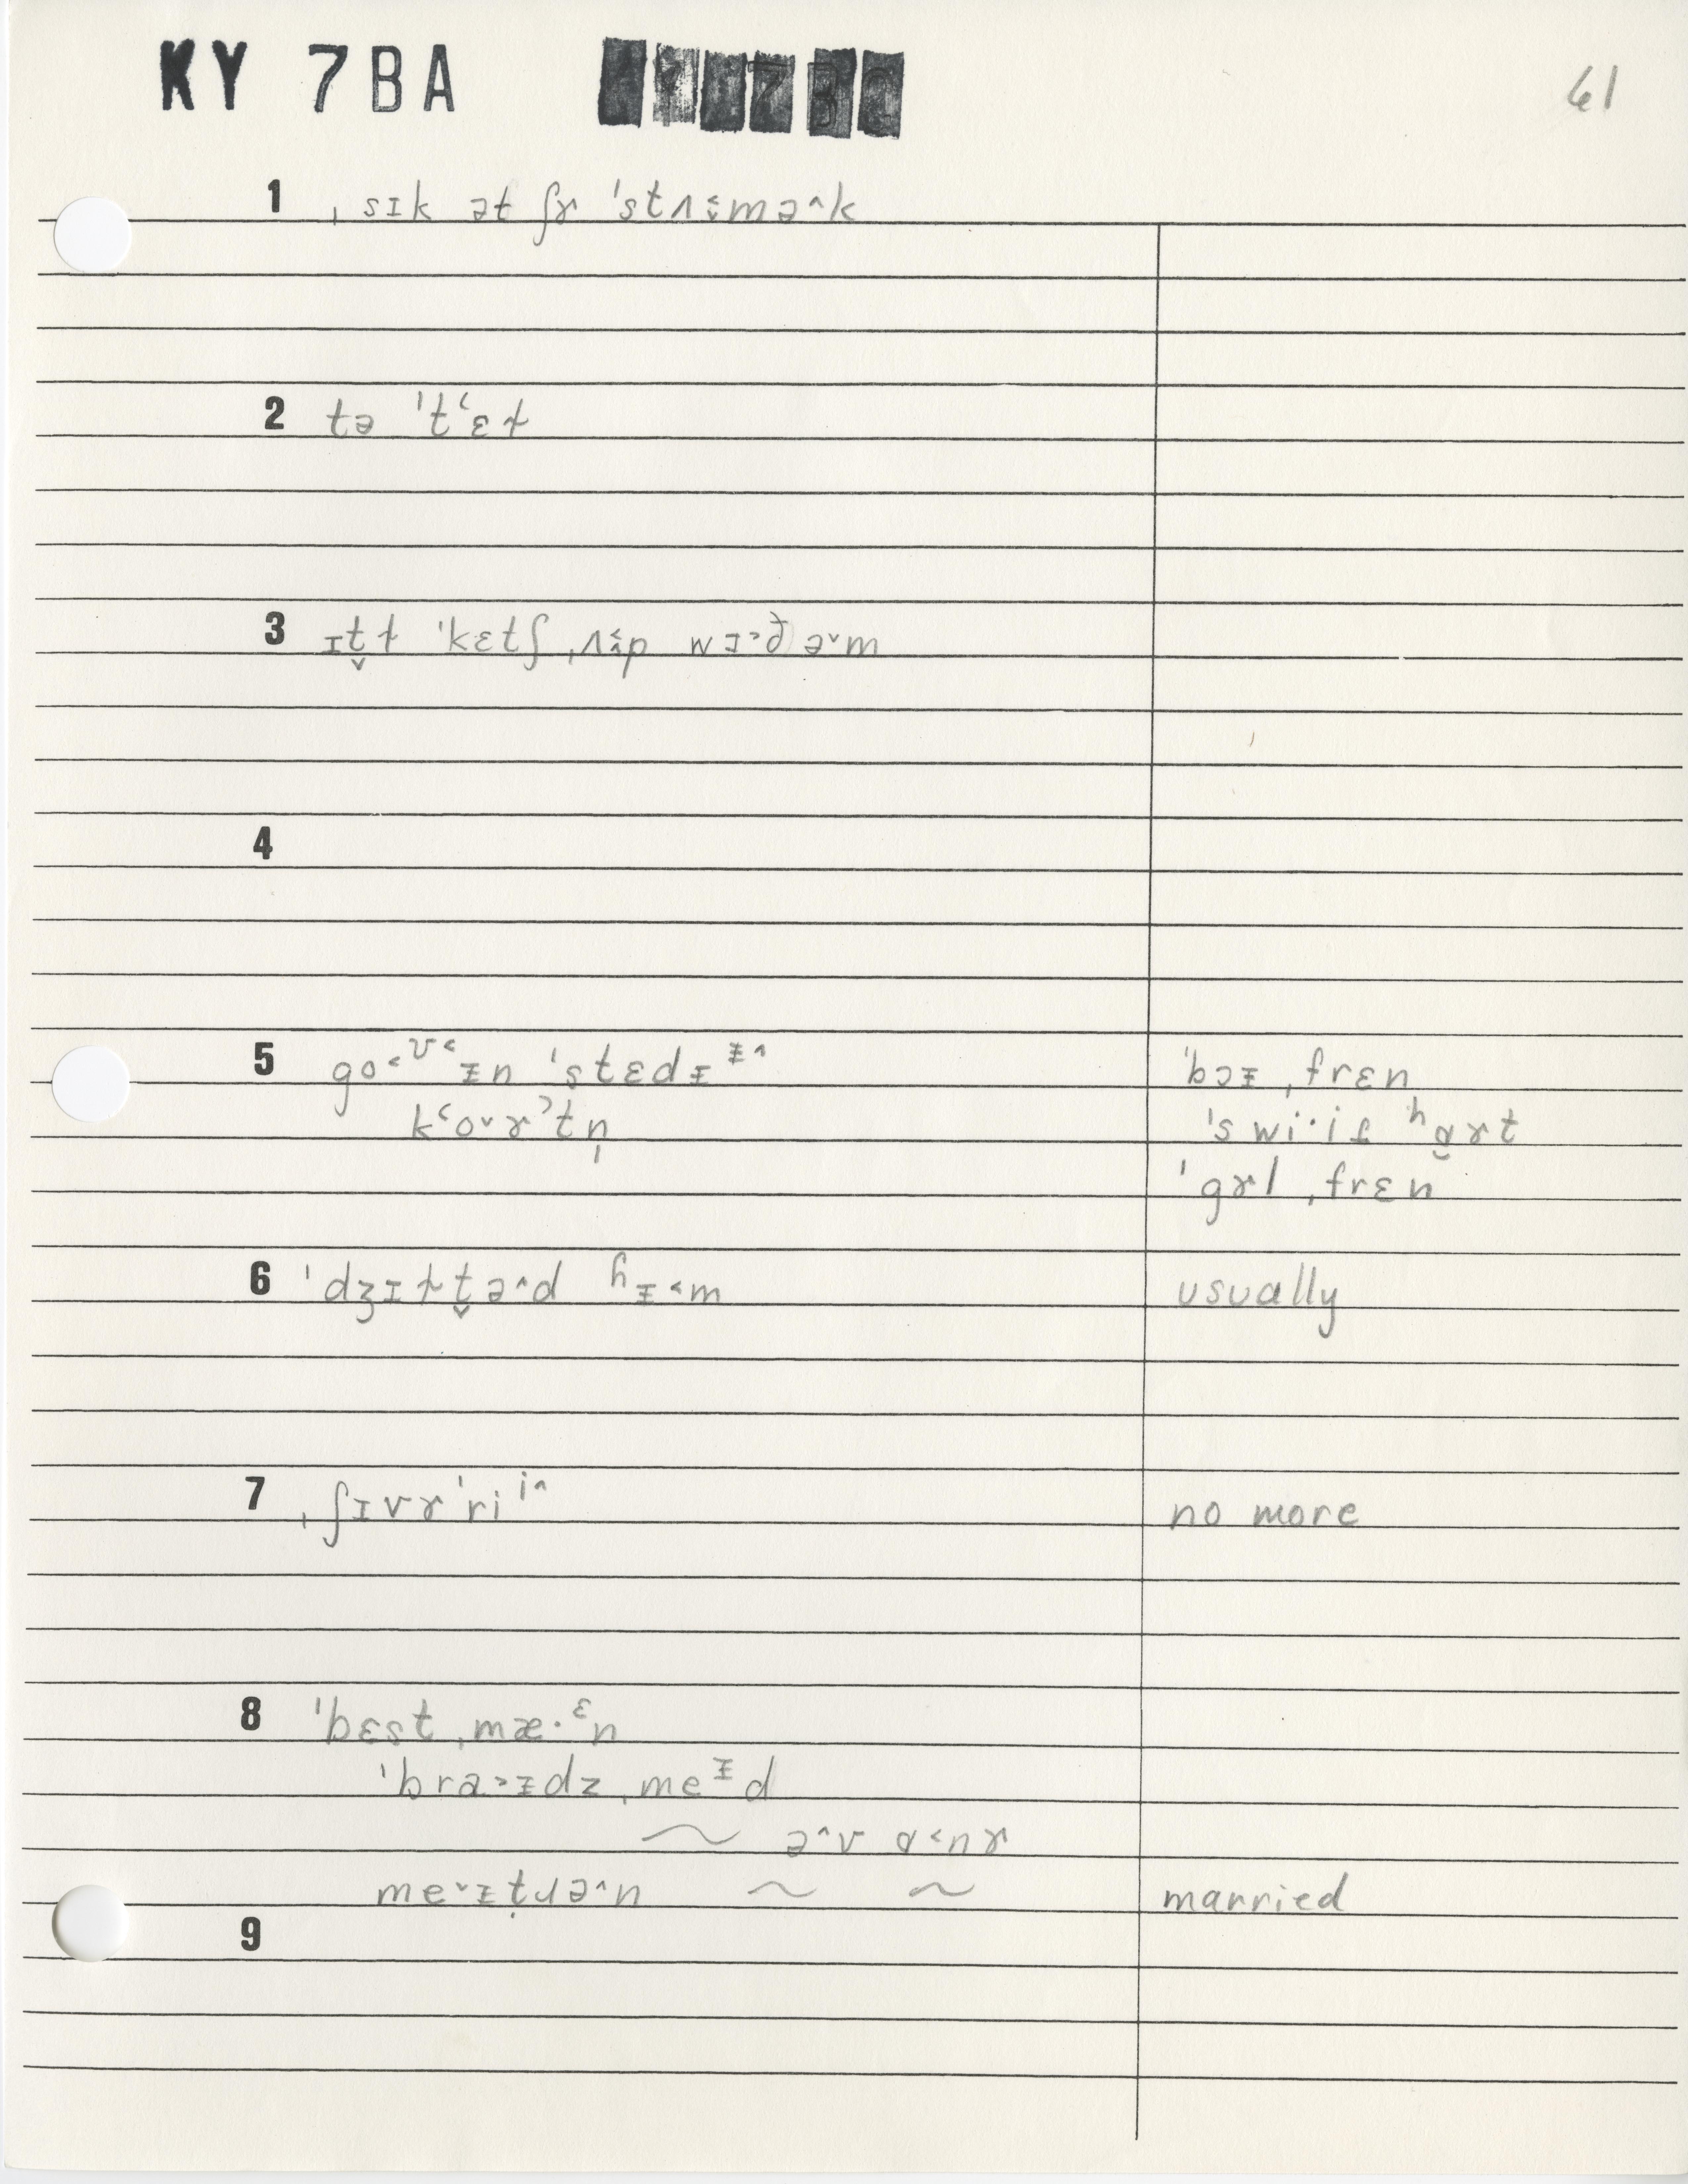 KY 7BA
61
1 ˌsɪk ət ʃɤ ˈstʌmə^k
2 tə ˈt̹ʻɛɫ
3 ɪt̬ɫ ˈkɛtʃ ˌʌp wɪ˃ð ə˅m
4
5 go˂ᶷ˂ ᵻn ˈstɛdᵻ ᵻ^ ˈbɔᵻ ˌfrɛn
kʻo˅ɤʾtn̩ ˈswi·i ʰɑrt
ˈgɤl ˌfrɛn
6 ˈdʒɪɫt̬ə^d ʰᵻ˂m usually
7 ˌʃɪvɤˈri i^ no more
8 ˈbɛst ˌmæ·ᵋn
ˈbra˃ᵻdz ˌmeᵻd
~ ə^v ɑ˂nɤ
~ ~ married
9